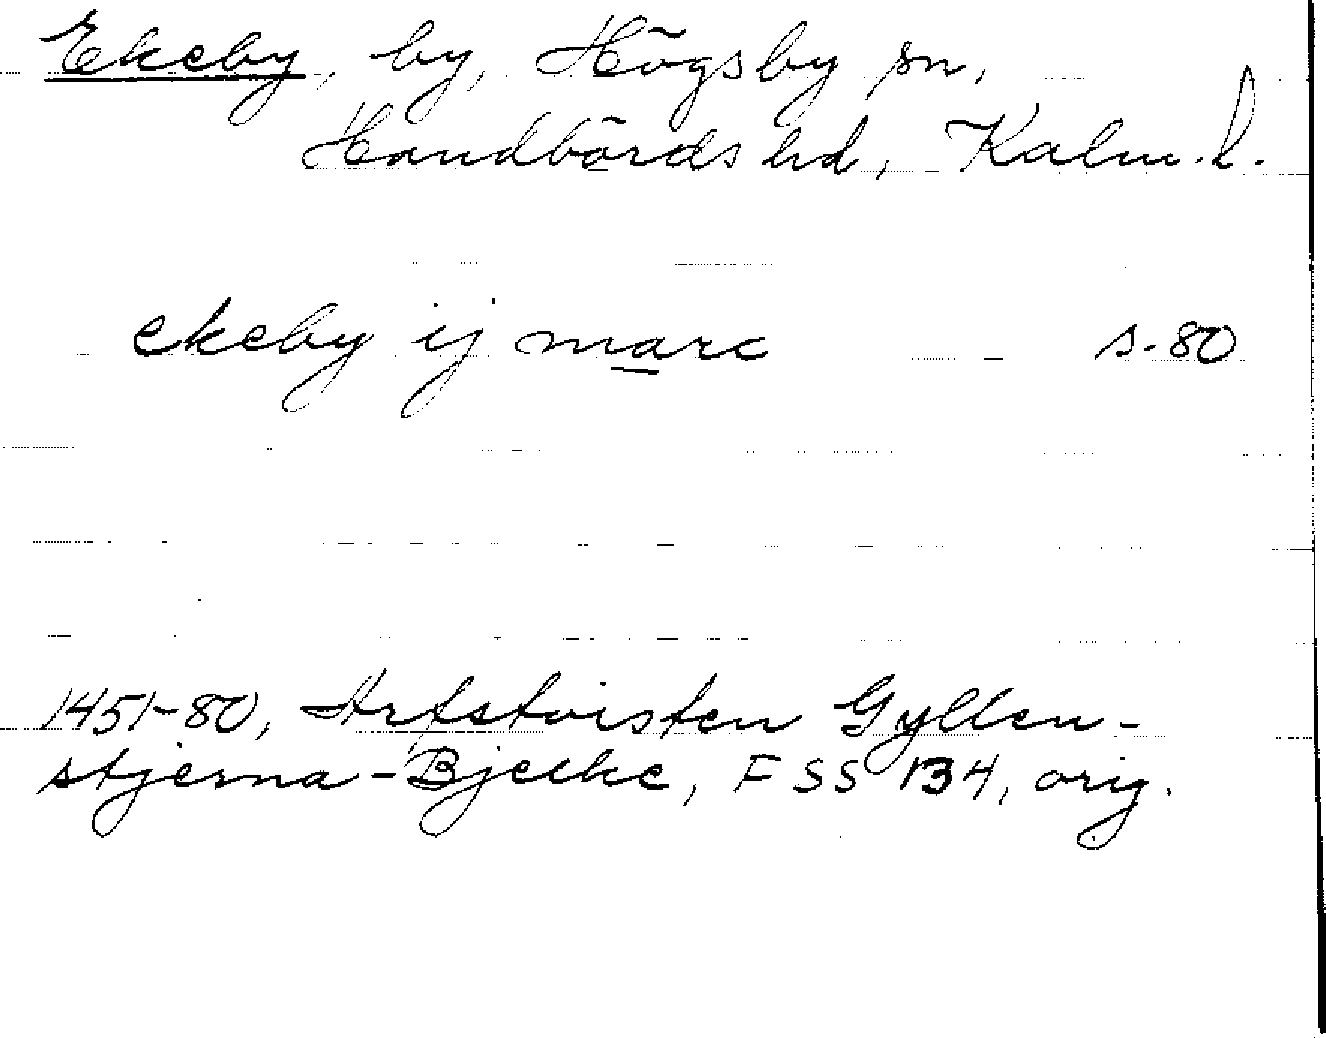 Ekeby, by, Högsby sn,
Handbörds hd, Kalm. l.
ekeby ij marc s. 80
1451-80, Arfstvisten Gyllen-
stjerna-Bjelke, FSS 134, orig.